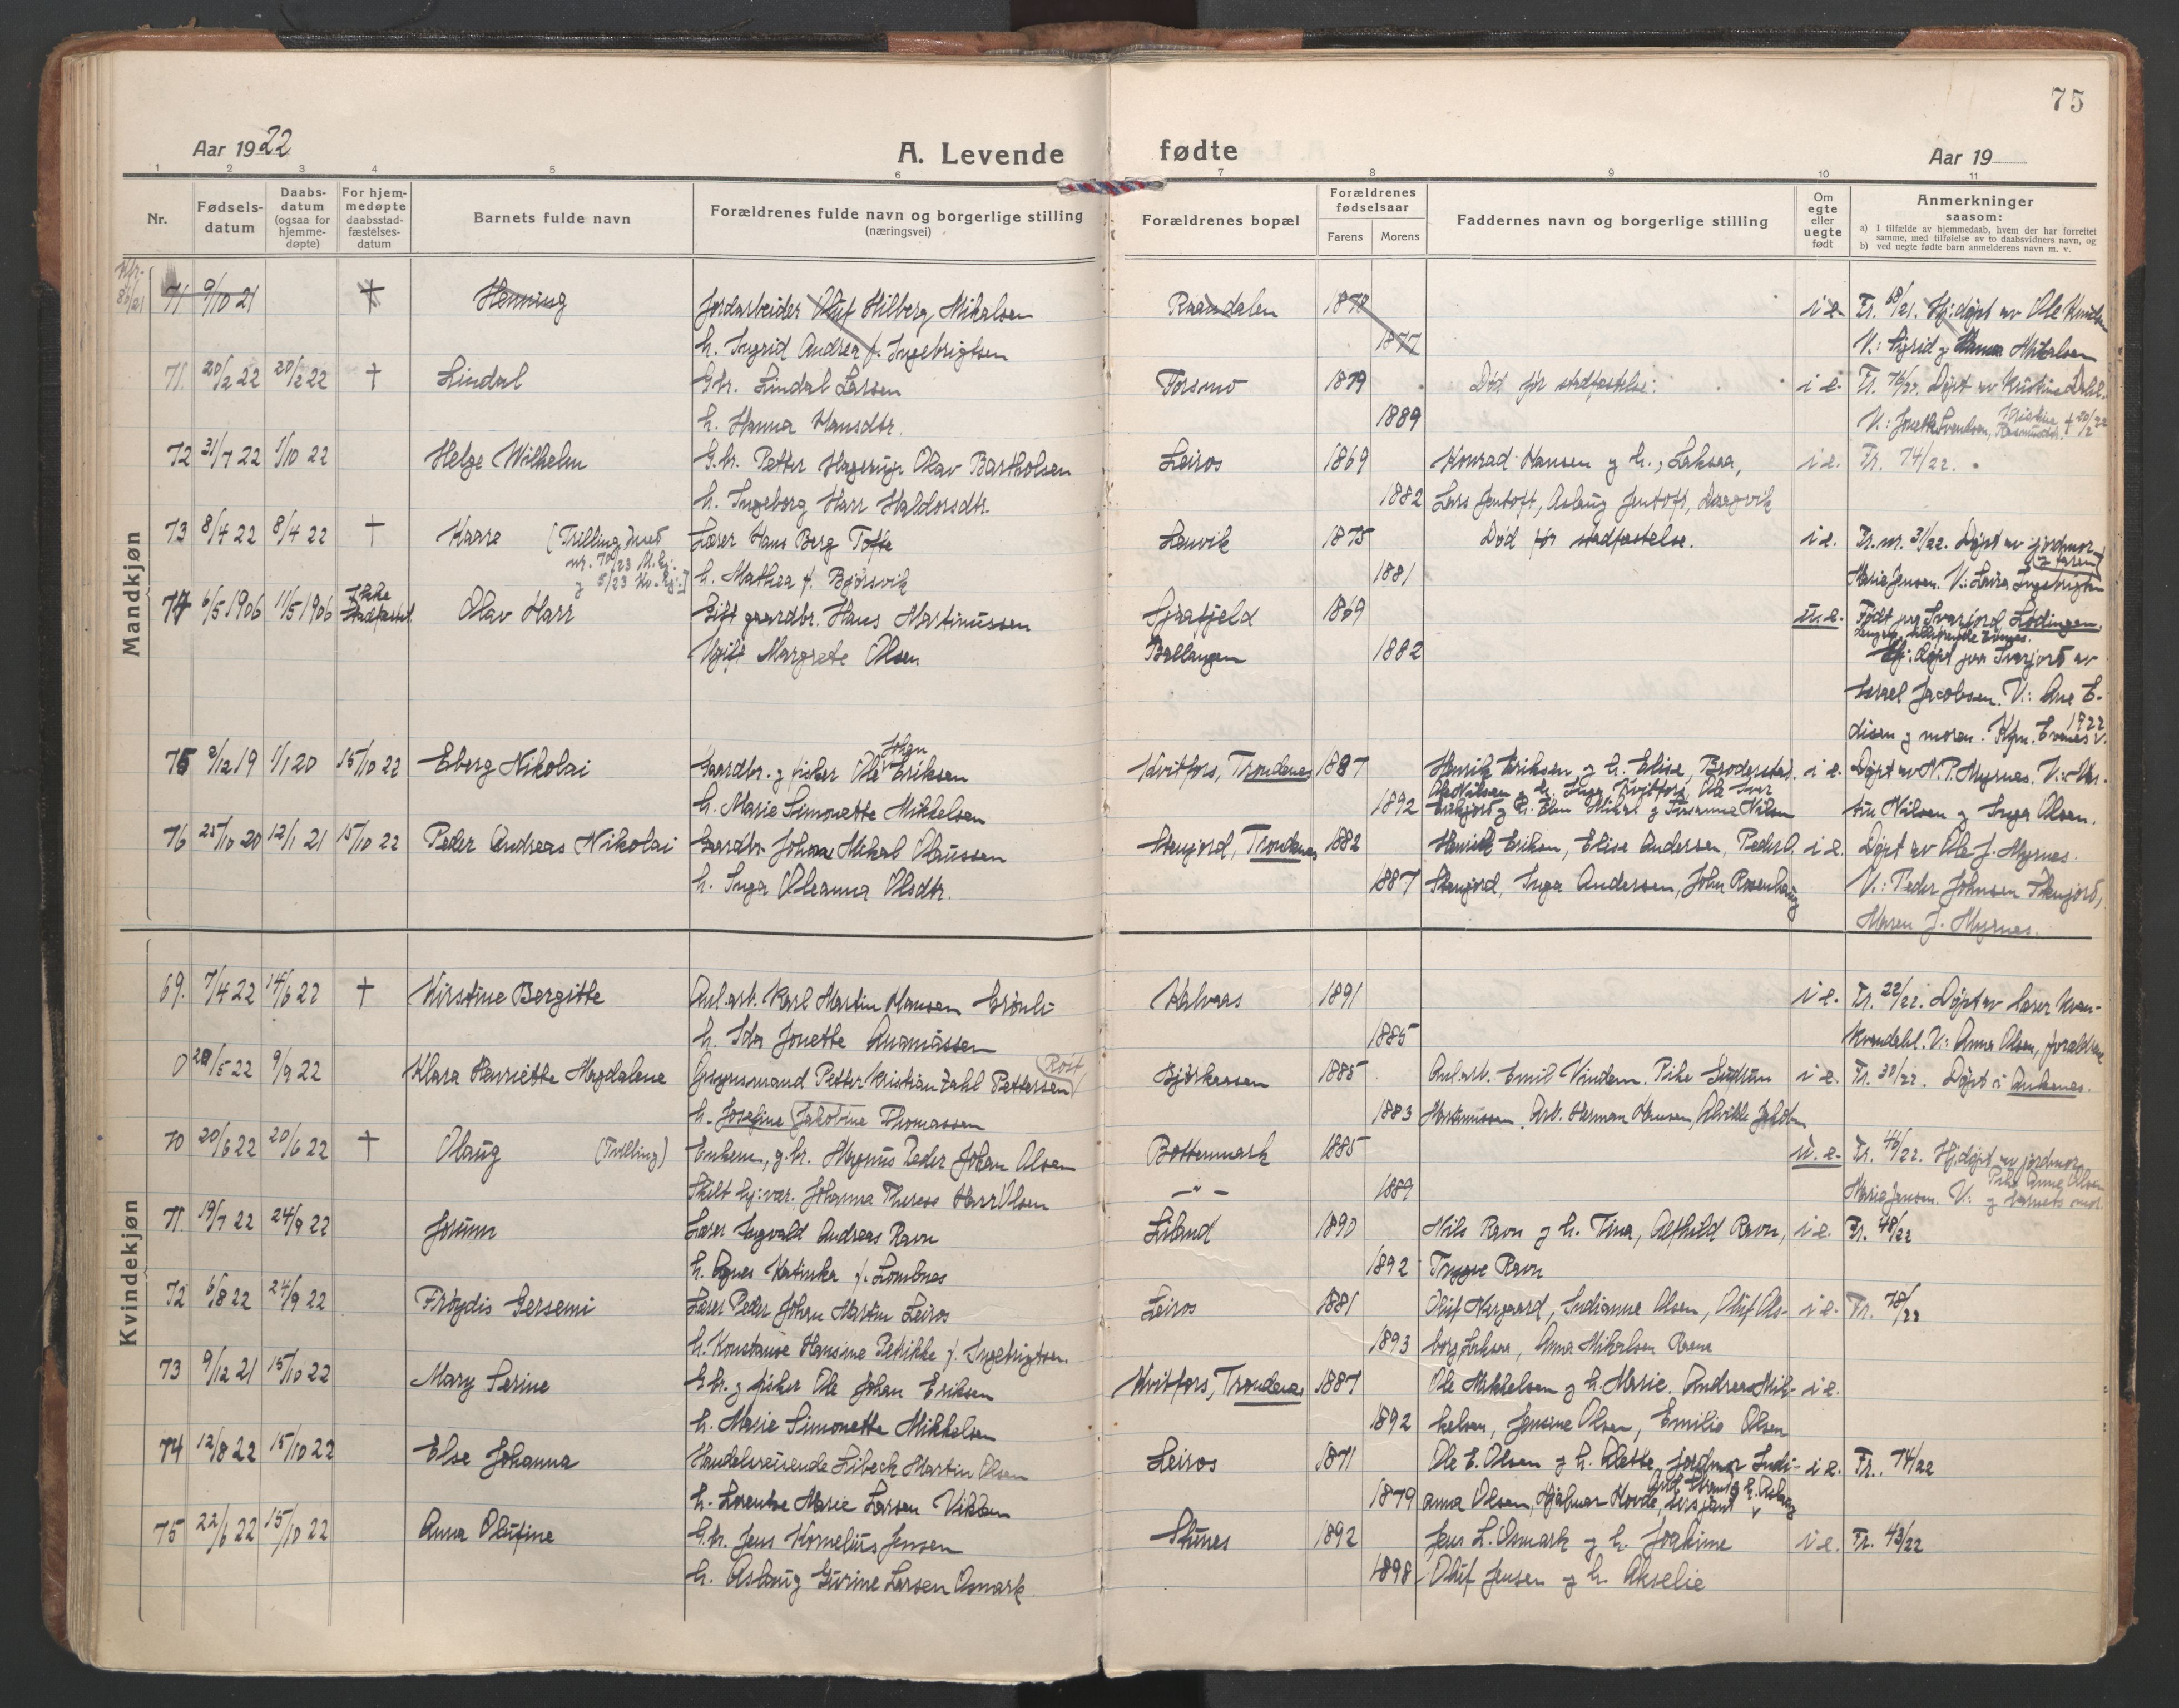 75
Aar 1922
A. Levende
fødte
Aar 19
1 2 3 4 5 6 7 8 9 10 11
Nr.
Fødsels-
datum
Daabs-
datum
(ogsaa for
hjemme-
døpte)
For hjem-
medøpte
daabsstad-
fæstelses-
datum
Barnets fulde navn
Forældrenes fulde navn og borgerlige stilling
(næringsvei)
Forældrenes bopæl
Forældrenes
fødselsaar
Farens
Morens
Faddernes navn og borgerlige stilling
Om
egte
eller
uegte
født
Anmerkninger
saasom:
a) I tilfælde av hjemmedaab, hvem der har forrettet
samme, med tilføielse av to daabsvidners navn, og
b) ved uegte født barn anmelderens navn m. v.
Mandkjøn
71 9/10 21 † Henning Jordarbeider Oluf Hilberg Mikalsen Raandalen 1878 i e. Fr. 68/21. Hj:døpt av Ole
h. Ingrid Andrea f. Ingebrigtsen 1877 V.: Sigrid g Mikalsen
71. 20/2 22 20/2 22 † Lindal G.br. Lindal Larsen Forsmo 1879 Død før stadfæstelse. i e. Fr. 76/22. Døpt av Kristine Dahl.
h. Hanna Hansdtr. 1889 V.: Svendsen, † 20/2 22
72 31/7 22 1/10 22 Helge Wilhelm G.br. Petter Hagerup Olav Bartholsen Leiros 1869 Konrad Hansen g h., Laksaa, i e. Fr. 74/22.
h. Ingeborg Harr Haldorsdtr. 1882 Lars Jentoft, Aslaug Jentoft,
73 8/4 22 8/4 22 † Kaare (Trilling med Lærer Hans Berg Tofte Lenvik 1875 Død før stadfæstelse. i e. Fr. nr. 31/22. Døpt av jordmor
h. Mathea f. Bjørsvik 1881 Maria Jensen. V.: Laura
74 6/5 1906 11/5 1906 Ikke stadfæstet Olav Harr Gift gaardbr. Hans Martinussen 1869 u.e. Født paa Svarjord Lødingen.
Ugift Margrete Olsen Ballangen 1882 Hj:døpt paa Svarjord av
Israel Jacobsen. V.: Ane E-
disen g moren.
75 2/12 19 1/1 20 15/10 22 Eberg Nikolai Gaardbr. g fisker Ole Johan Eriksen Kvitfors, Trondenes 1887 Henrik Eriksen g h. Elise, i e. Døpt av N. P. Myrnes. V.:
h. Marie Simonette Mikkelsen 1892 Nilsen g Inga Olsen.
76 25/10 20 12/1 21 15/10 22 Peder Andreas Nikolai Gaardbr. Johan Mikal Olaussen Stenjord, Trondenes 1882 Henrik Eriksen, Elise Andersen, Peder i e. Døpt av Ole J. Myrnes.
h. Inga Oleanna Olsdtr. 1887 Stenjord, Inga Andersen, John Rosenhaug V.: Peder Johnsen Stenjord,
Maren J. Myrnes.
Kvindekjøn
69. 7/4 22 14/6 22 † Kirstine Bergitte Anl.arb. Karl Martin Hansen Grønli Kalvaas 1891 i e. Fr. 22/22. Døpt av lærer
h. Ida Jonette Rasmussen 1885 Kvendahl. V.: Anna Olsen, forældrene
0 28/5 22 9/9 22 Klara Henriette Magdalene Opsynsmand Petter Kristian Zahl Pettersen (Røst) Bjørkaasen 1885 Anl.arb. Emil Vindem. Pike Gudrun i e. Fr. 38/22. Døpt i Ankenes.
h. Josefine Jakobine Thomassen 1883 Martinussen. Arb. Herman Hansen,
70 20/6 22 20/6 22 † Olaug (Tvilling) Enkem., g.br. Magnus Peder Johan Olsen Bottenmark 1885 u.e. Fr. 46/22. Hj.døpt av jordmor
Skilt Johanna Theres Harr Olsen — " — 1889 Maria Jensen. V: Pike Anna Olsen g barnets mor.
71 19/7 22 24/9 22 Jorunn Lærer Ingvald Andreas Ravn Liland 1890 Nils Ravn g h. Tina, Alfhild Ravn, i e. Fr. 48/22
h. Agnes Katinka f. Lombnes 1892 Trygve Ravn
72 6/8 22 24/9 22 Frøydis Gersemi Lærer Peder Johan Martin Leiros Leiros 1881 Oluf Nergaard, Indianne Olsen, Oluf Als- i e. Fr. 78/22
h. Konstanse Hansine Petrikke f. Ingebrigtsen 1893 borg, Laksaa, Anna Mikalsen
73 9/12 21 15/10 22 Mary Serine G.br. g fisker Ole Johan Eriksen Kvitfors, Trondenes 1887 Ole Mikkelsen g h. Marie. Andreas Mik- i e.
h. Marie Simonette Mikkelsen 1892 kelsen, Jensine Olsen, Emilie Olsen
74 12/8 22 15/10 22 Else Johanna Handelsreisende Libeck Martin Olsen Leiros 1871 Ole E. Olsen g h. Alette, jordmor Indi- i e. Fr. 74/22
h. Lorentze Marie Larsen Vikken 1879 anna Olsen, Hjalmar Hovde,
75 22/6 22 15/10 22 Anna Olufine G.br. Jens Kornelius Jensen 1892 Jens L. Osmark g h. Joakime i e. Fr. 43/22
h. Aslaug Gurine Larsen Osmark 1898 Oluf Jensen g h. Akselie